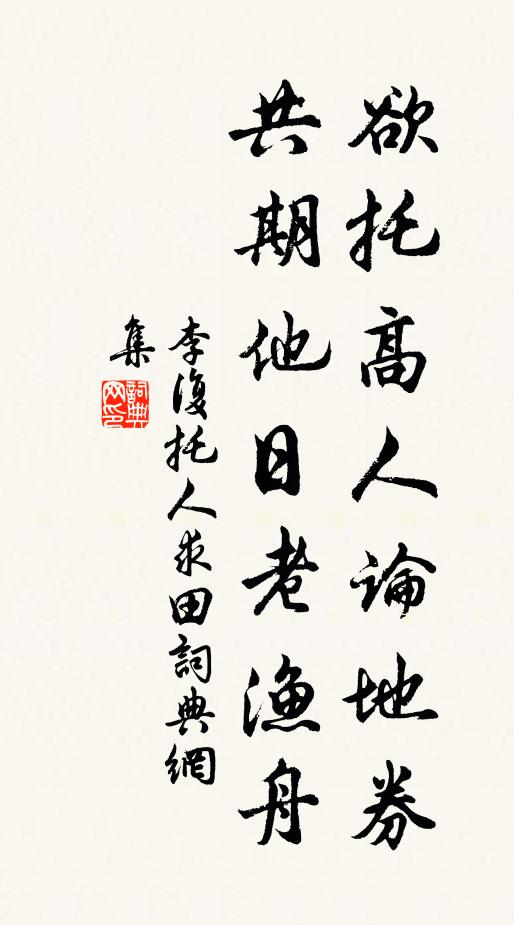 欲托高人論地券
共期他日老漁舟
李復托人求田詞典網
集
詞典網印